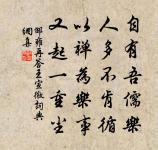 自有吾儒樂
人多不肯循
以禪為樂事
又起一重塵
邵雍再答王宣徽詞典
網喜